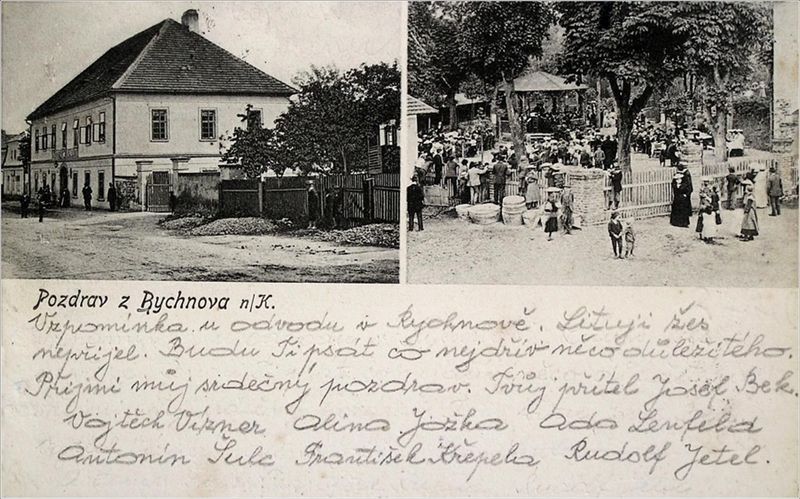 Pozdrav z Rychnova n/K.
Vzpomínka u odvodu v Rychnově. Lituji žes
nepřijel. Budu Ti psát co nejdřív něco důležitého.
Přijmi můj srdečný pozdrav. Tvůj přítel Josef Bek.
Vojtěch Vízner Alina Jožka Ada Lenfeld
Antonín Šulc František Křepela Rudolf Jetel.